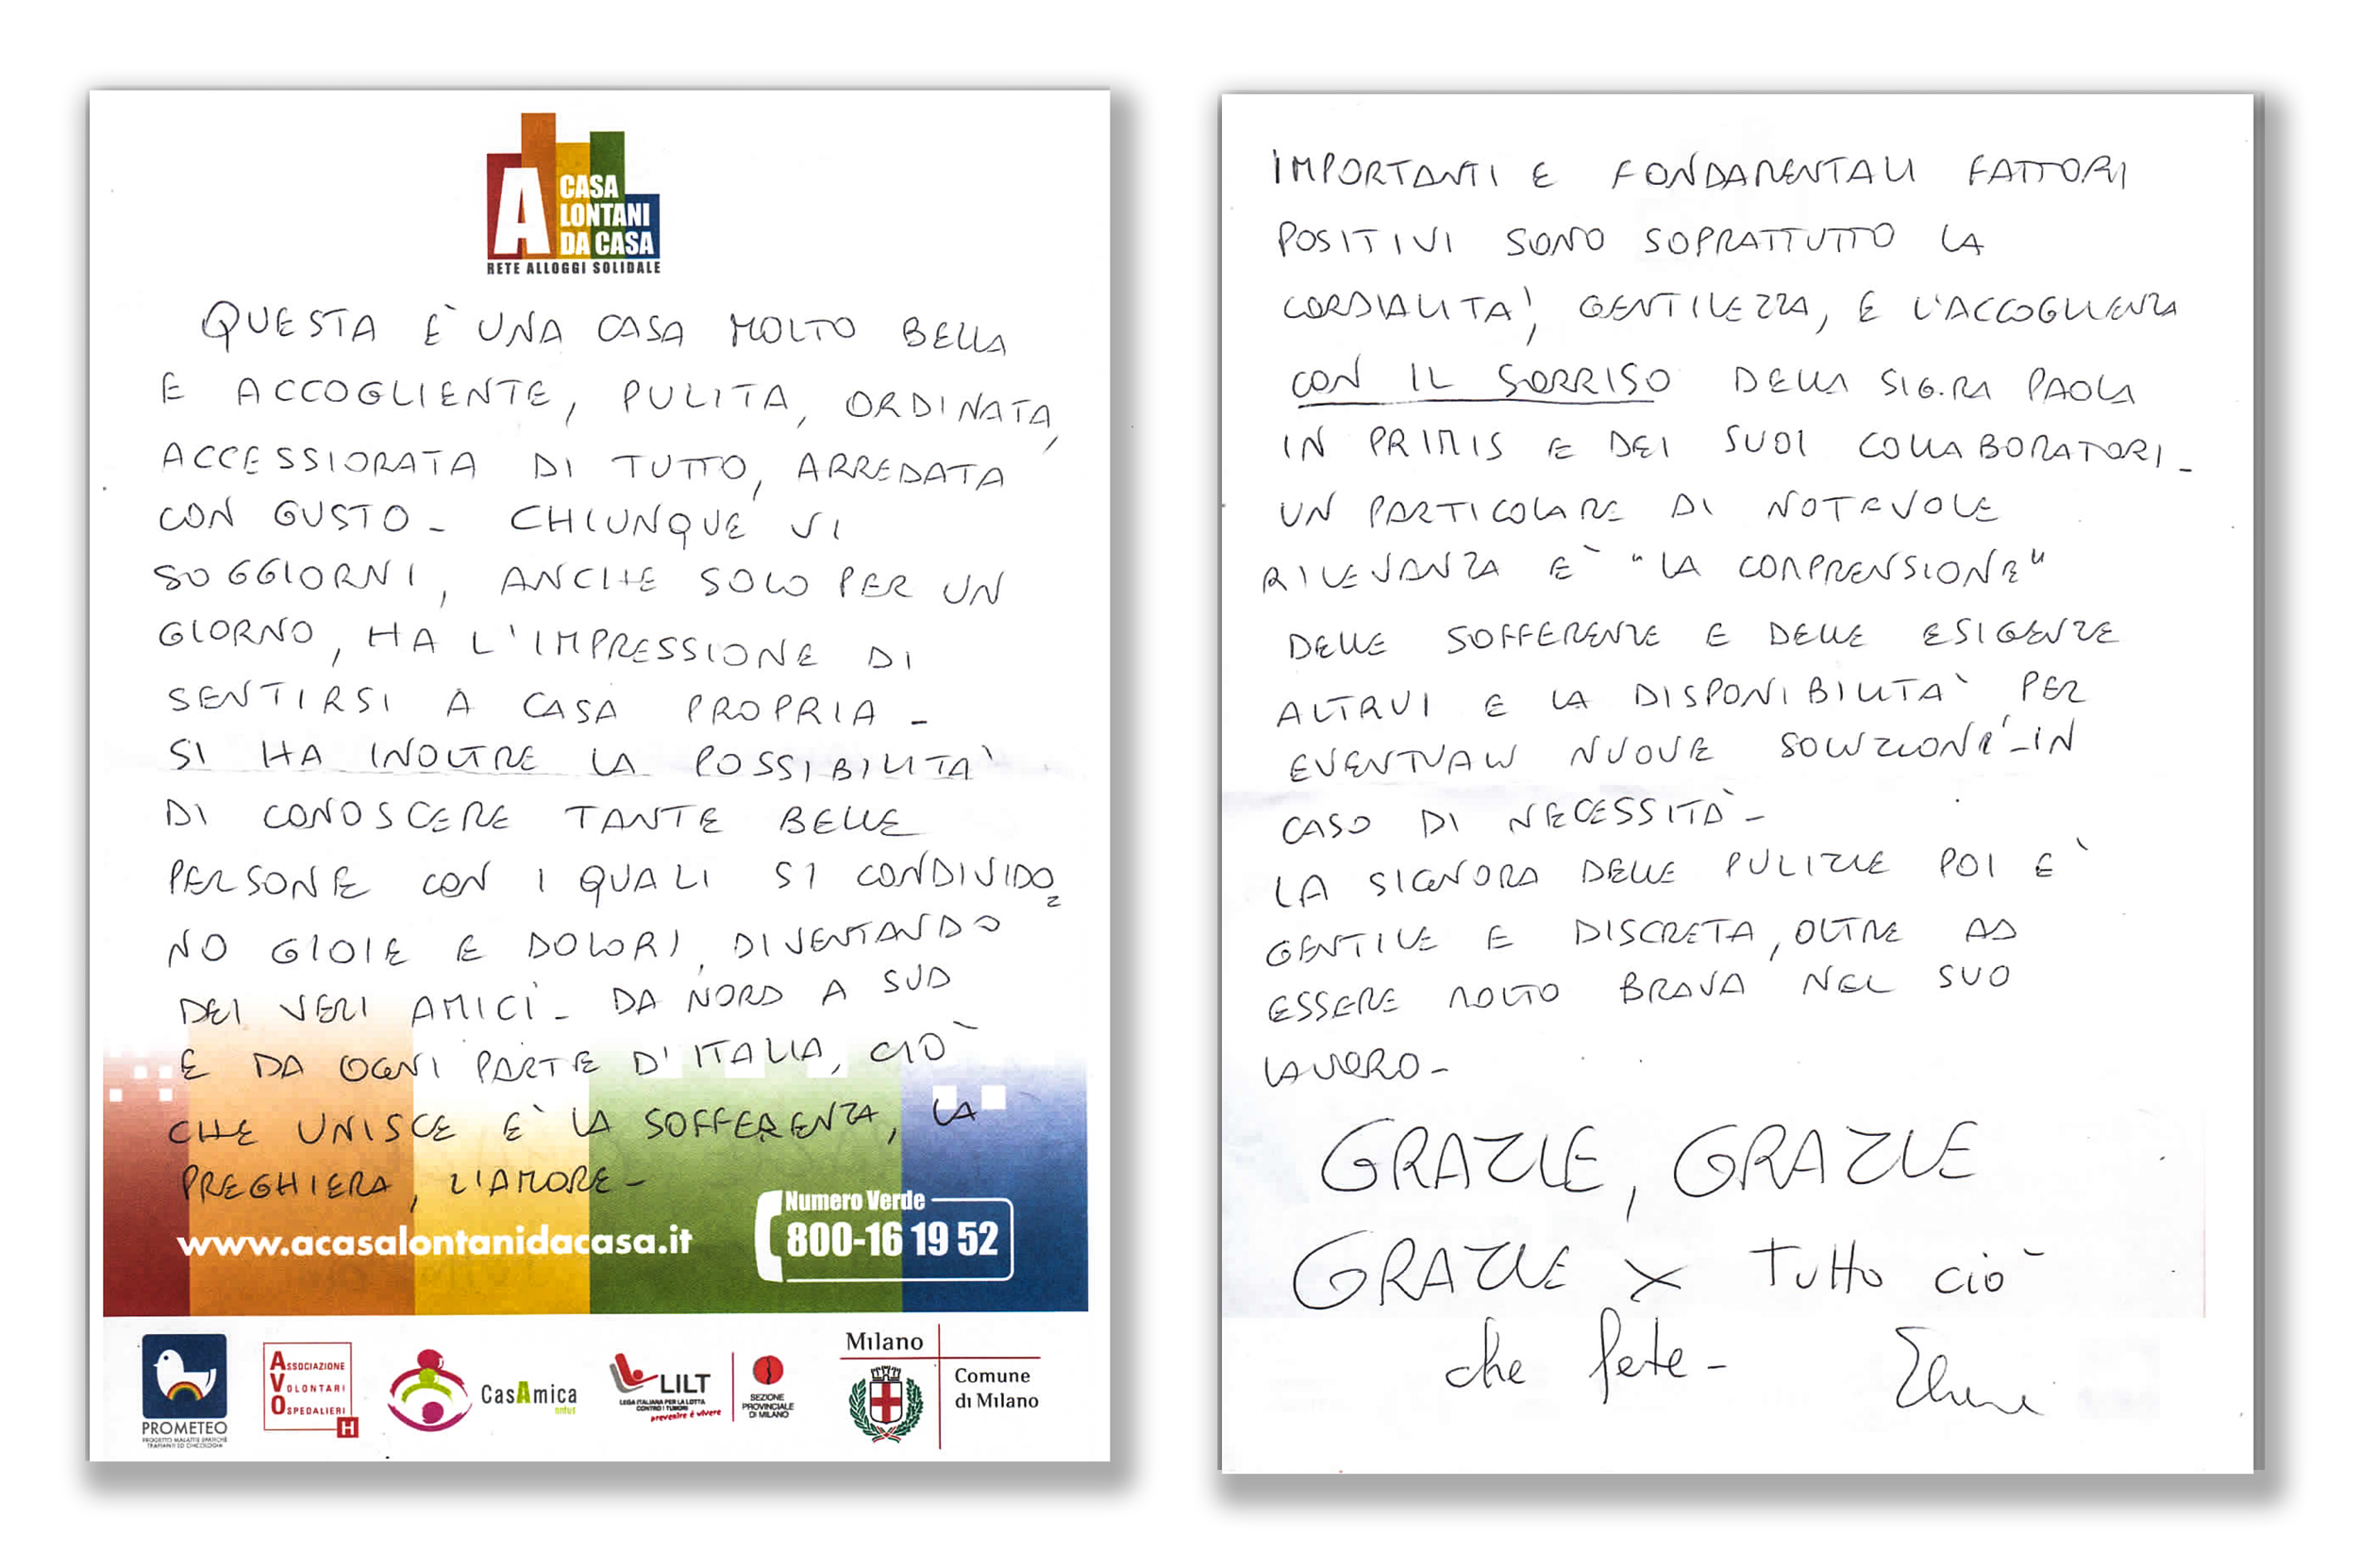 A CASA
LONTANI
DA CASA
RETE ALLOGGI SOLIDALE
QUESTA È UNA CASA MOLTO BELLA
E ACCOGLIENTE, PULITA, ORDINATA,
ACCESSIORATA DI TUTTO, ARREDATA
CON GUSTO - CHIUNQUE VI
SOGGIORNI, ANCHE SOLO PER UN
GIORNO, HA L'IMPRESSIONE DI
SENTIRSI A CASA PROPRIA -
SI HA INOLTRE LA POSSIBILITA'
DI CONOSCERE TANTE BELLE
PERSONE CON I QUALI SI CONDIVIDO=
NO GIOIE E DOLORI, DIVENTANDO
DEI VERI AMICI - DA NORD A SUD
E DA OGNI PARTE D'ITALIA, CIÒ
CHE UNISCE E' LA SOFFERENZA, LA
PREGHIERA, L'AMORE -
Numero Verde
www.acasalontanidacasa.it 800-16 19 52
PROMETEO
PROGETTO MALATTIE EPATICHE
TRAPIANTI ED ONCOLOGIA
ASSOCIAZIONE
VOLONTARI
OSPEDALIERI
H
CasAmica
onlus
LILT
LEGA ITALIANA PER LA LOTTA
CONTRO I TUMORI
prevenire è vivere
SEZIONE
PROVINCIALE
DI MILANO
Milano
Comune
di Milano
IMPORTANTI E FONDAMENTALI FATTORI
POSITIVI SONO SOPRATTUTTO LA
CORDIALITA', GENTILEZZA, E L'ACCOGLIENZA
CON IL SORRISO DELLA SIG.RA PAOLA
IN PRIMIS E DEI SUOI COLLABORATORI -
UN PARTICOLARE DI NOTEVOLE
RILEVANZA E' "LA COMPRENSIONE"
DELLE SOFFERENZE E DELLE ESIGENZE
ALTRUI E LA DISPONIBILITA' PER
EVENTUALI NUOVE SOLUZIONE' - IN
CASO DI NECESSITÀ -
LA SIGNORA DELLE PULIZIE POI E'
GENTILE E DISCRETA, OLTRE AD
ESSERE MOLTO BRAVA NEL SUO
LAVORO -
GRAZIE, GRAZIE
GRAZIE X Tutto ciò
che fate -